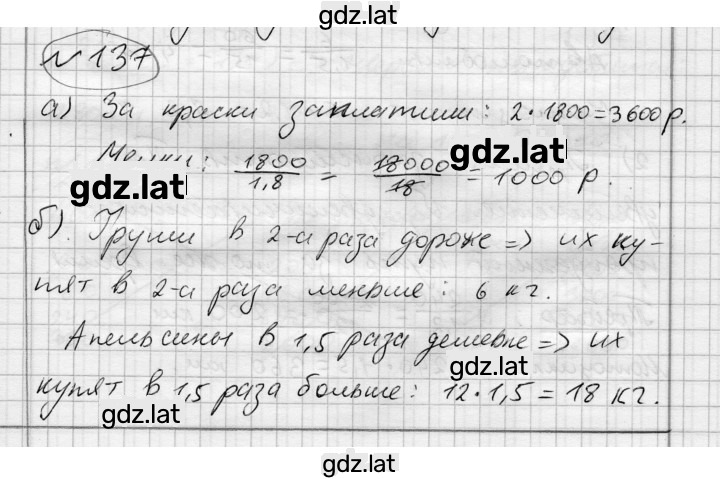 gdz.lat
№ 137
а) За краски заплатили: 2 · 1800 = 3600 р.
gdz.lat
: 1800/1,8 = 18000/18 = 1000 р.
gdz.lat
б) Груши в 2-а раза дороже => их ку-
пят в 2-а раза меньше: 6 кг.
Апельсины в 1,5 раза дешевле => их
gdz.lat
купят в 1,5 раза больше: 12 · 1,5 = 18 кг.
gdz.lat
gdz.lat